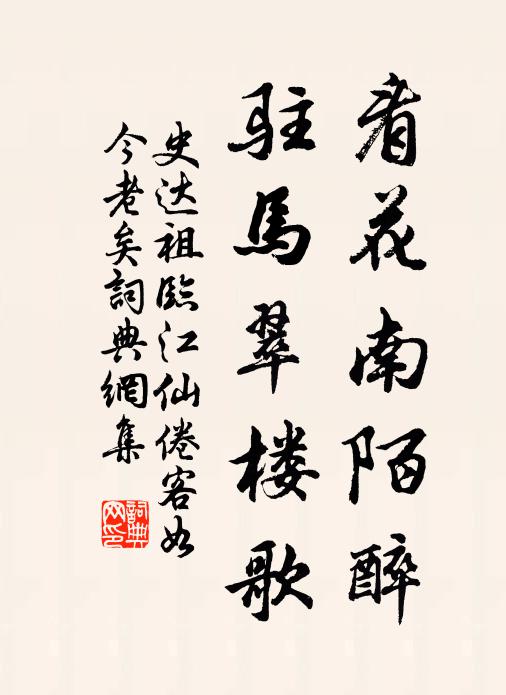 看花南陌醉
駐馬翠楼歌
史达祖臨江仙倦客如
今老矣詞典網集
詞典网印